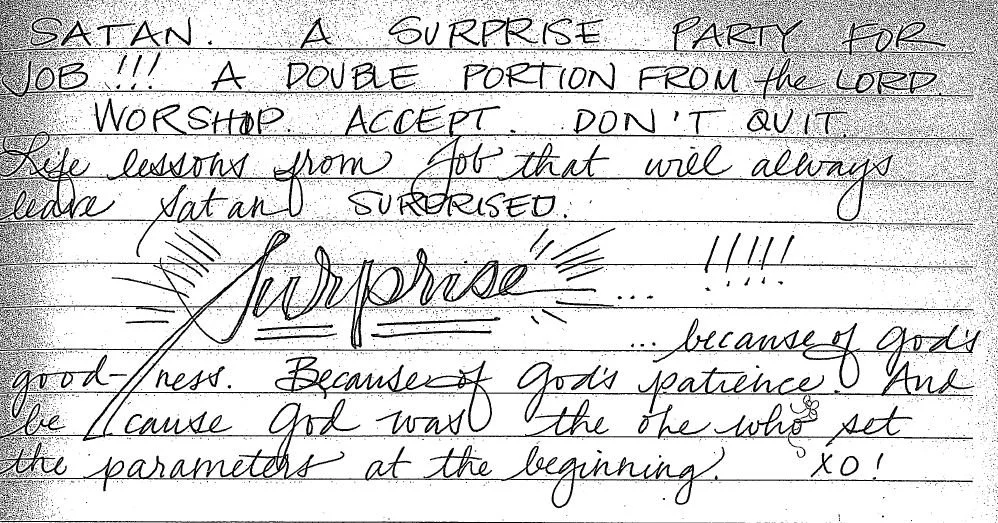 SATAN. A SURPRISE PARTY FOR
JOB!!! A DOUBLE PORTION FROM the LORD.
WORSHIP. ACCEPT. DON'T QUIT.
Life lessons from Job that will always
leave Satan SURPRISED.
Surprise ... !!!!!
... because of God's
good-ness. Because of God's patience. And
be cause God was the one who set
the parameters at the beginning. XO!